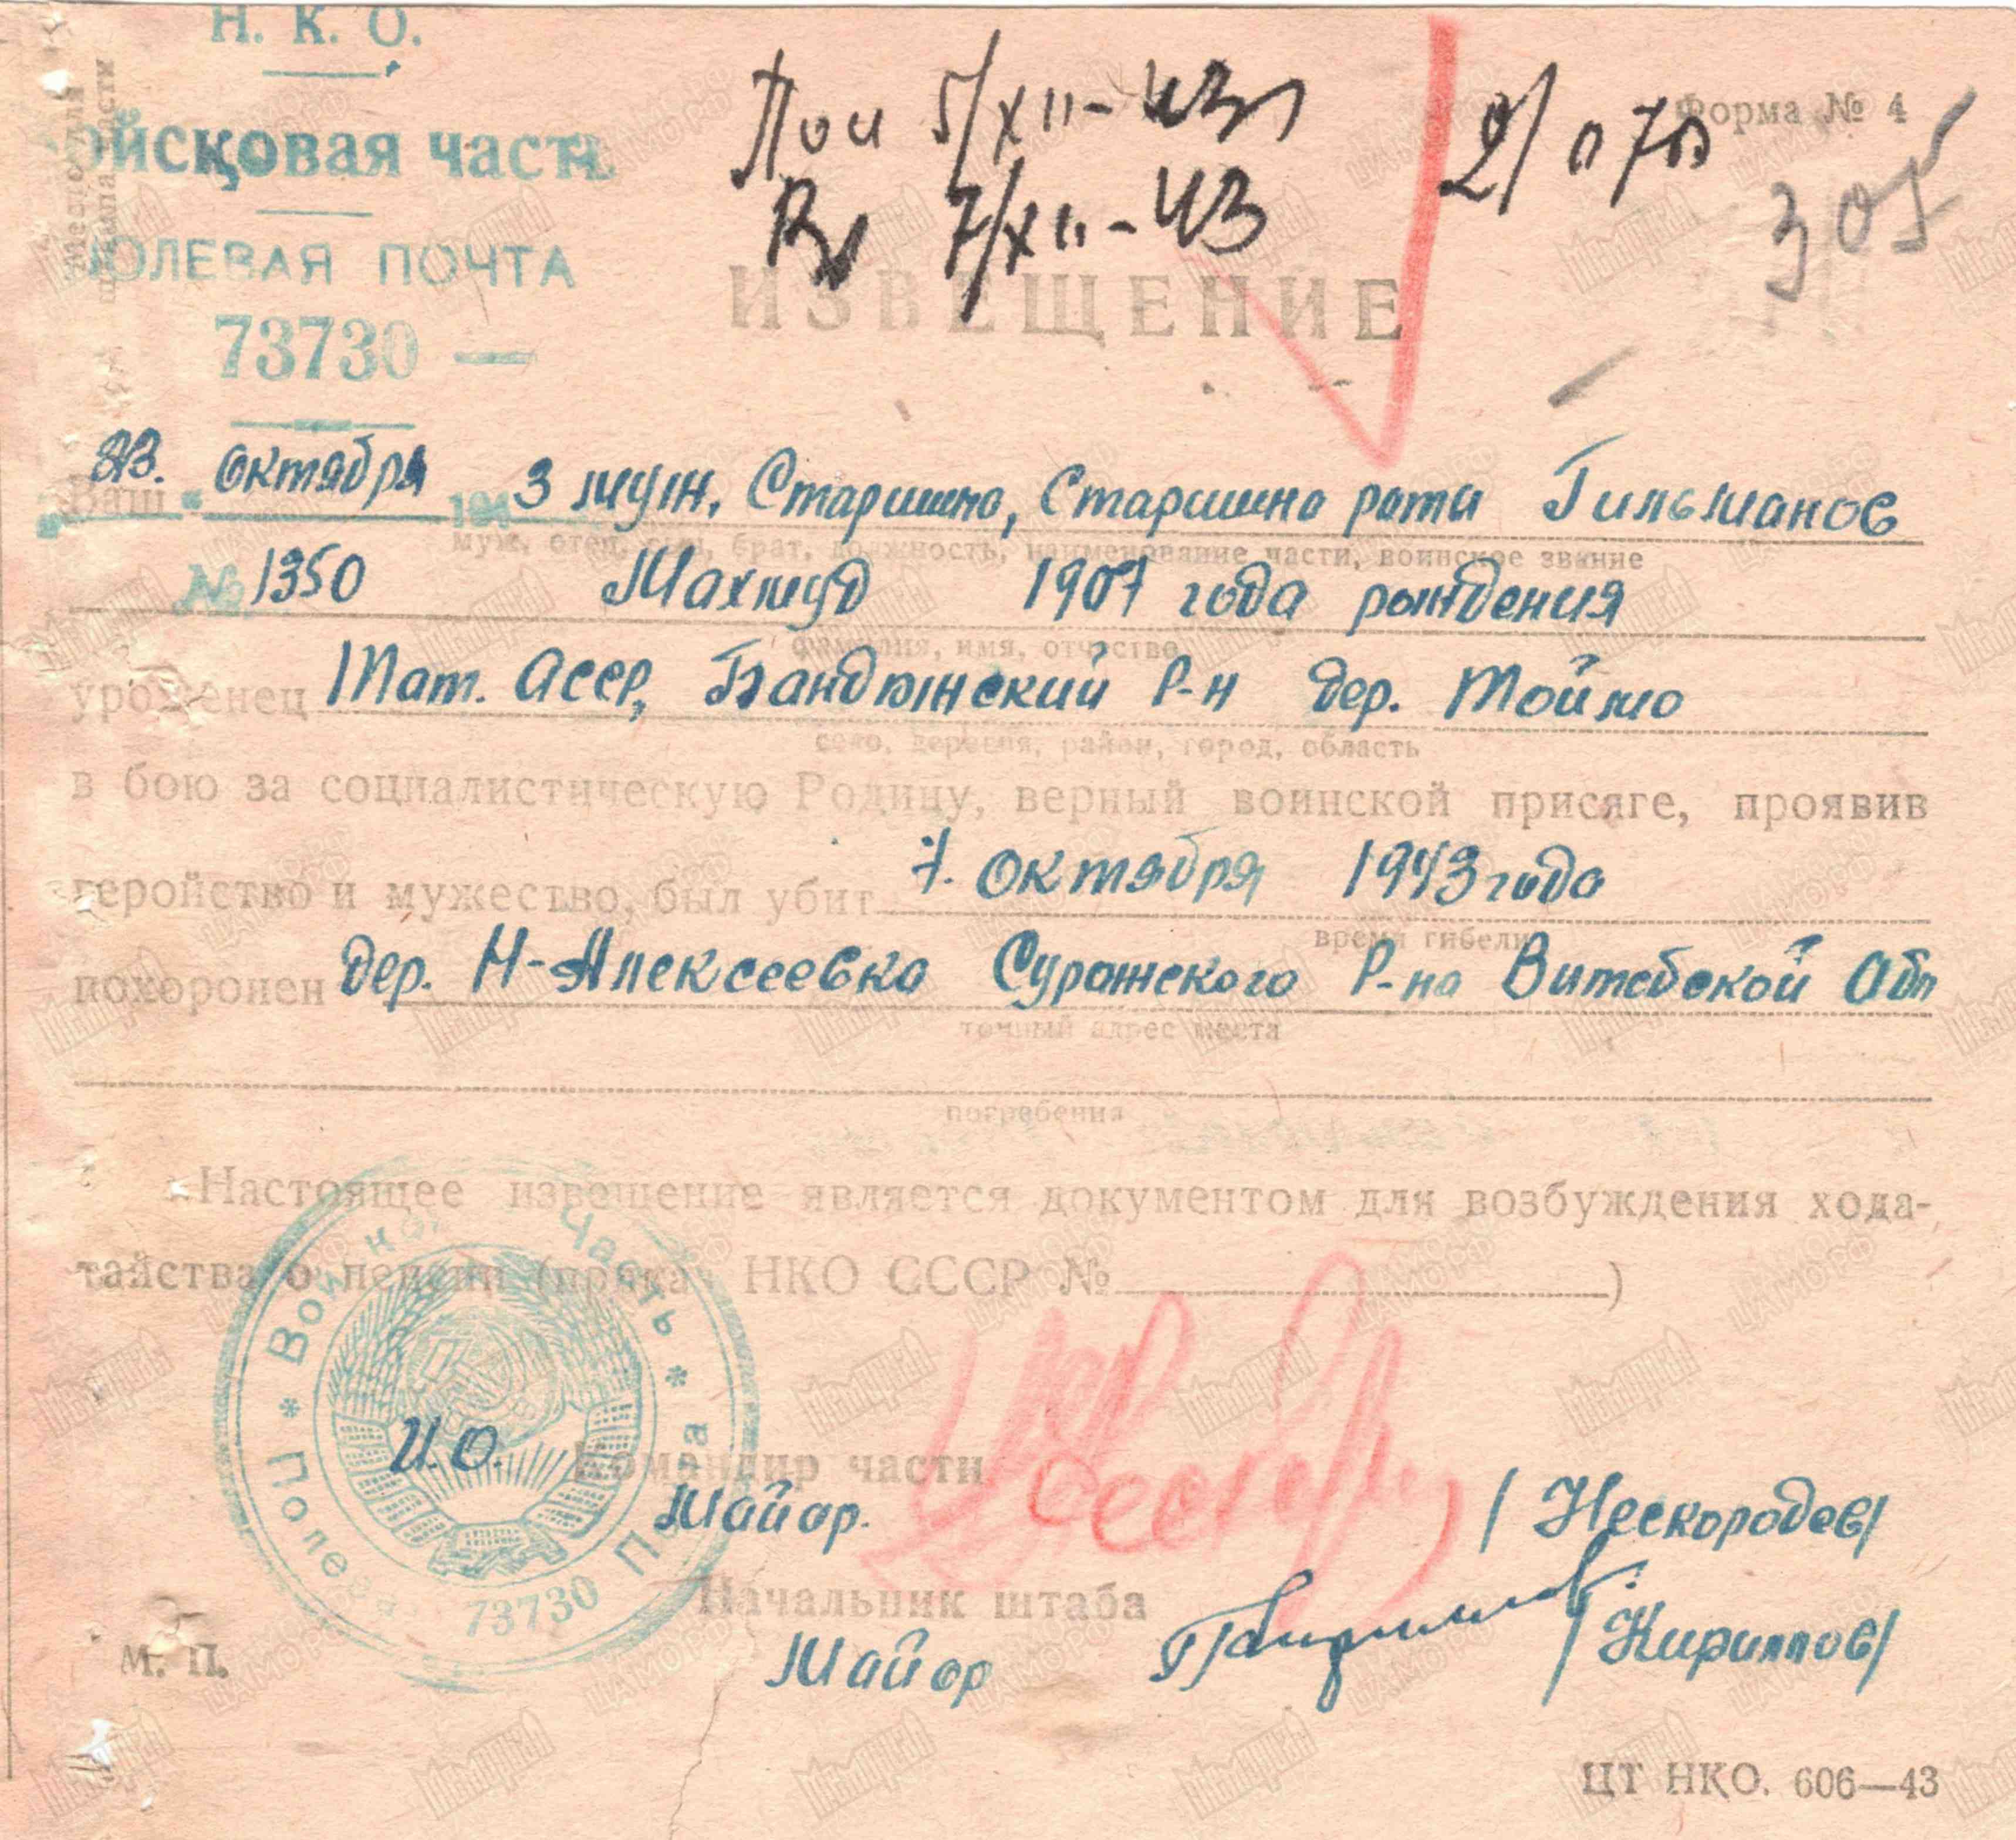 Н. К. О.
Войсковая часть
ПОЛЕВАЯ ПОЧТА
73730 —
5/XII-43
7/XII-43
Форма № 4
305
ИЗВЕЩЕНИЕ
23. октября 1943 Ваш муж, Старшина, Старшина роты Гильманов
муж, отец, сын, брат, должность, наименование части, воинское звание
№ 1350 Махмуд 1907 года рождения
фамилия, имя, отчество
уроженец Тат. Асср, Бандюжский Р-н дер. Тоймо
село, деревня, район, город, область
в бою за социалистическую Родину, верный воинской присяге, проявив
геройство и мужество, был убит 7. октября 1943 года
время гибели
похоронен дер. Н-Алексеевка Суражского Р-на Витебской Обл
точный адрес места
погребения
Настоящее извещение является документом для возбуждения хода-
тайства о пенсии (приказ НКО СССР № )
И.О. Командир части
Майор. /Нескородев/
Начальник штаба
Майор /Кириллов/
Войсковая Часть * Полевая Почта * 73730
М. П.
ЦТ НКО. 606—43